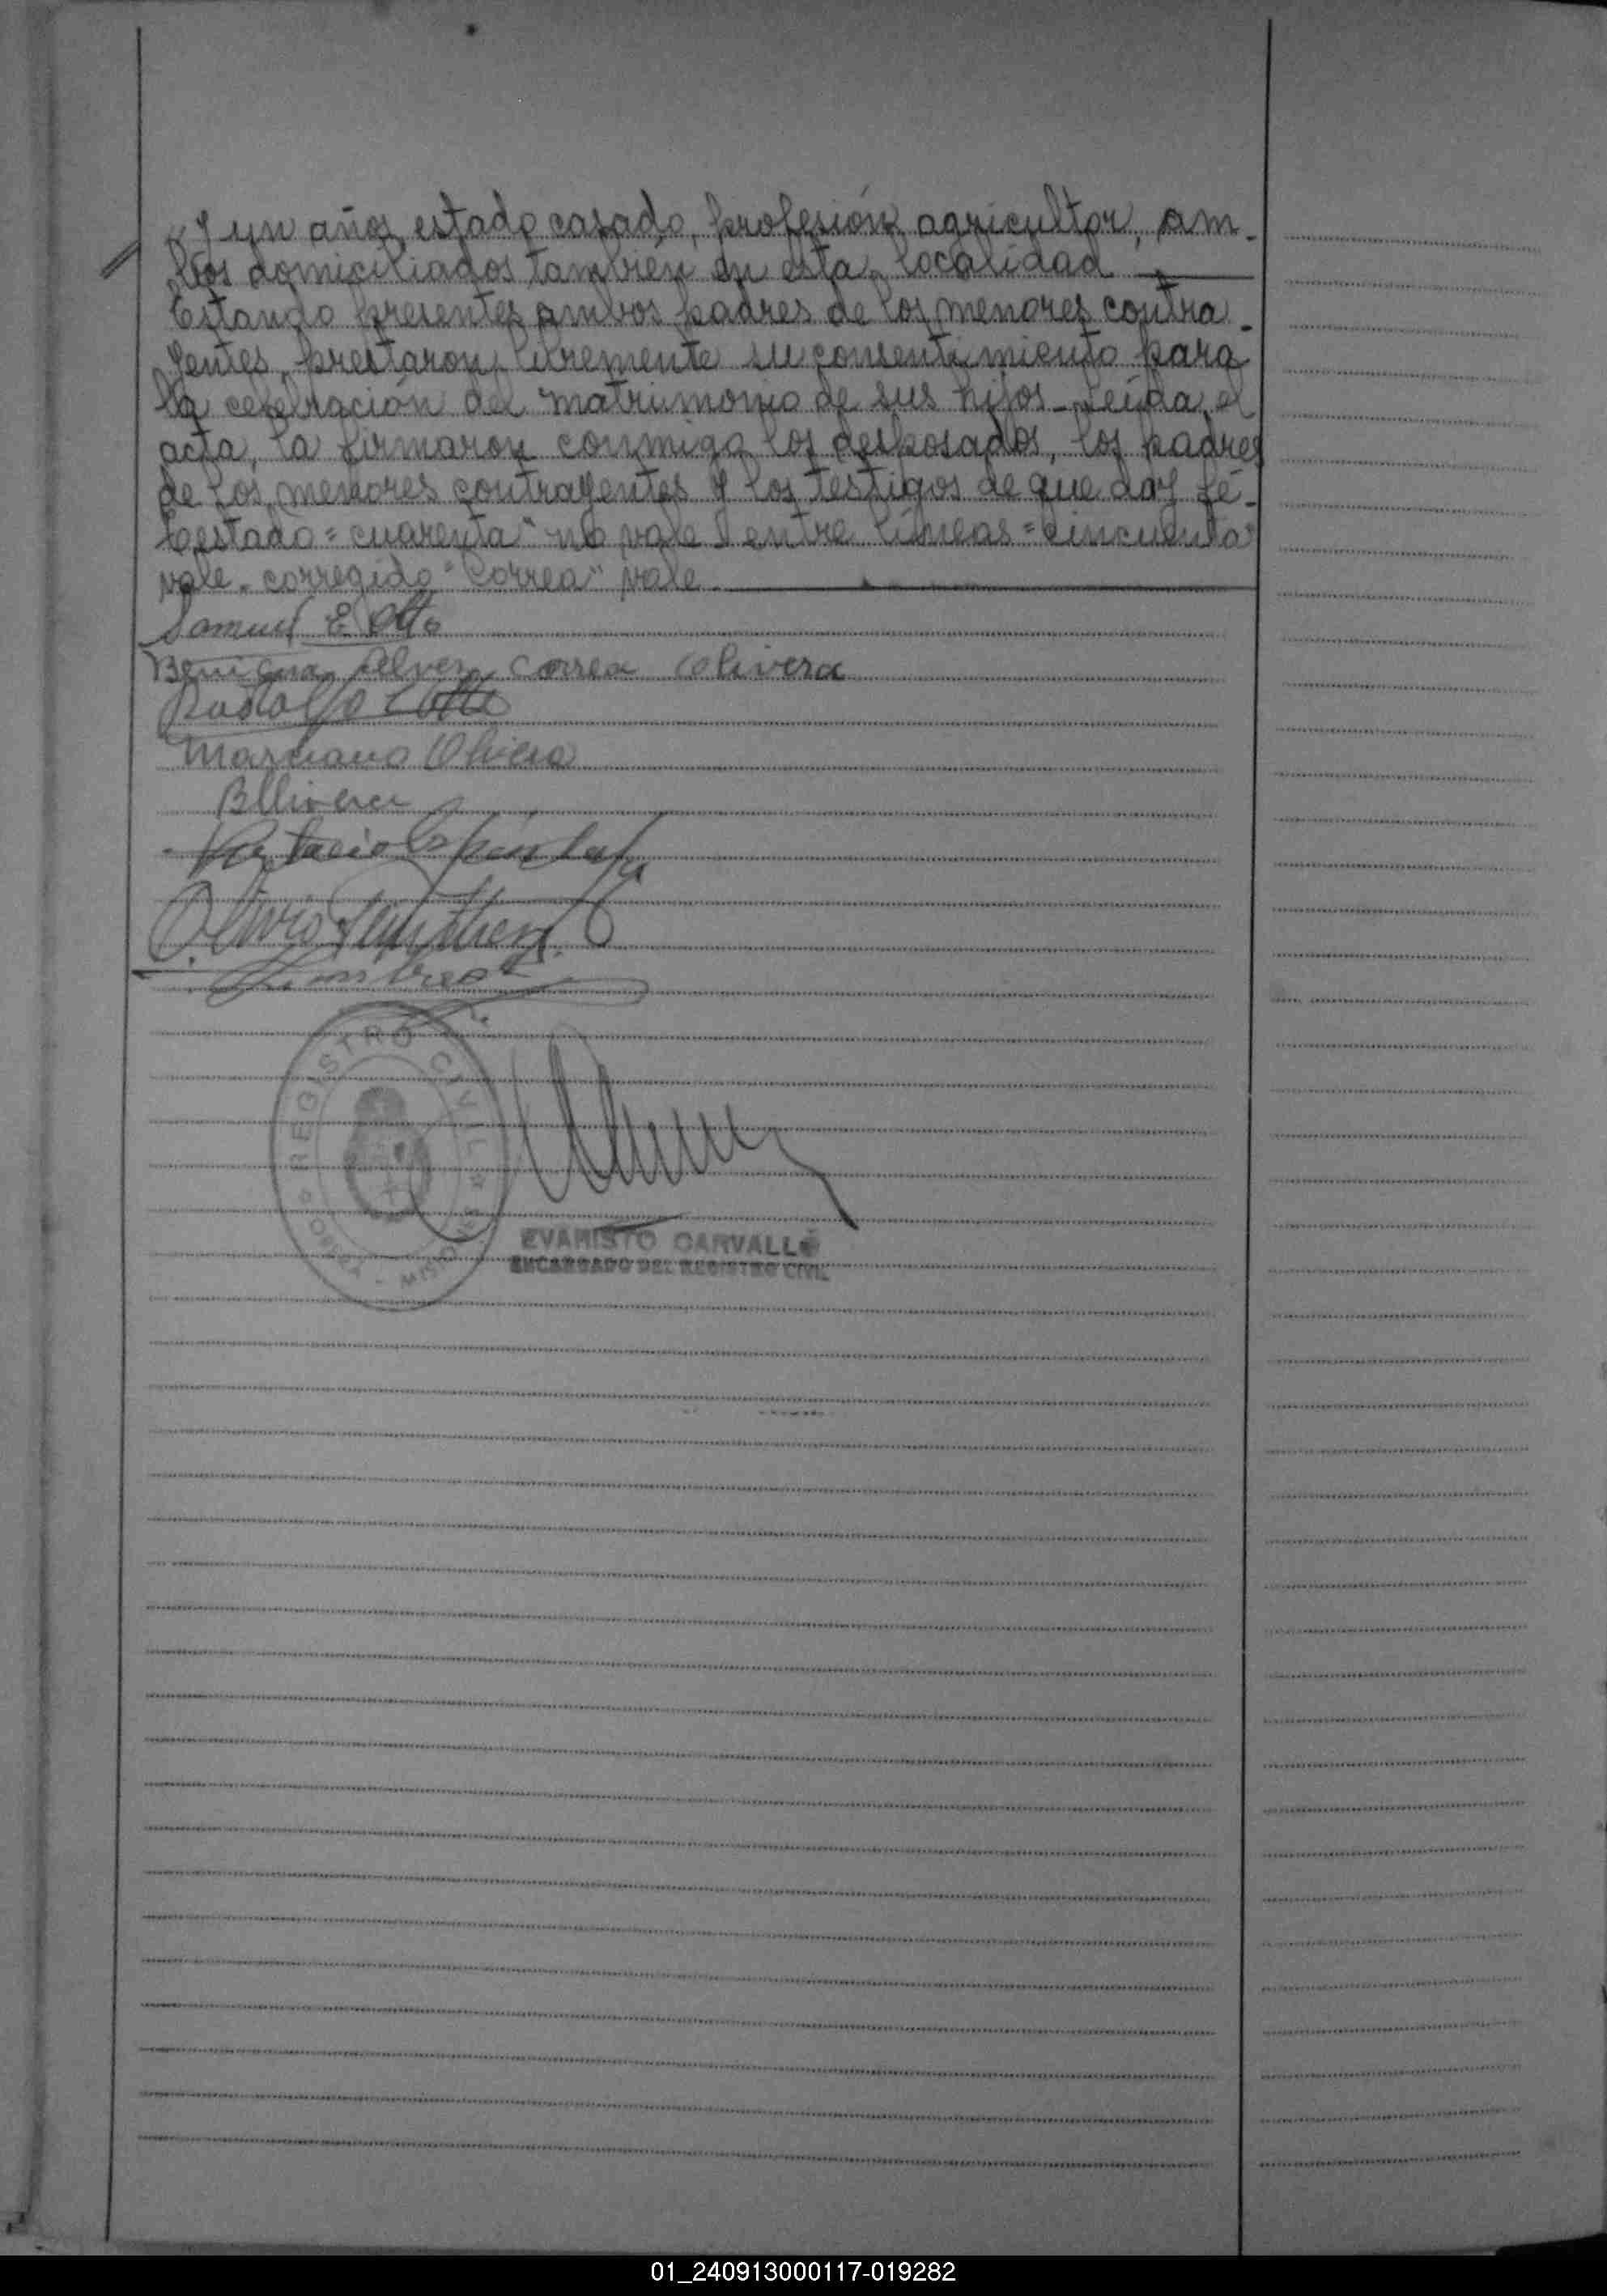 y un años, estado casado, profesión agricultor, am-
bos domiciliados también en esta localidad
Estando presentes ambos padres de los menores contra-
yentes, prestaron libremente su consentimiento para
la celebración del matrimonio de sus hijos - Leída el
acta, la firmaron conmigo los desposados, los padres
de los menores contrayentes y los testigos de que doy fé-
Testado = cuarenta" no vale y entre líneas = cincuenta"
vale. corregido "Correa" vale
Samuel E Otto
Benigna Alvez Correa Olivera
Rodolfo Otto
Marciano Olivera
B Olivera
REGISTRO CIVIL
MISIONES
EVARISTO CARVALLO
ENCARGADO DEL REGISTRO CIVIL
01_240913000117-019282